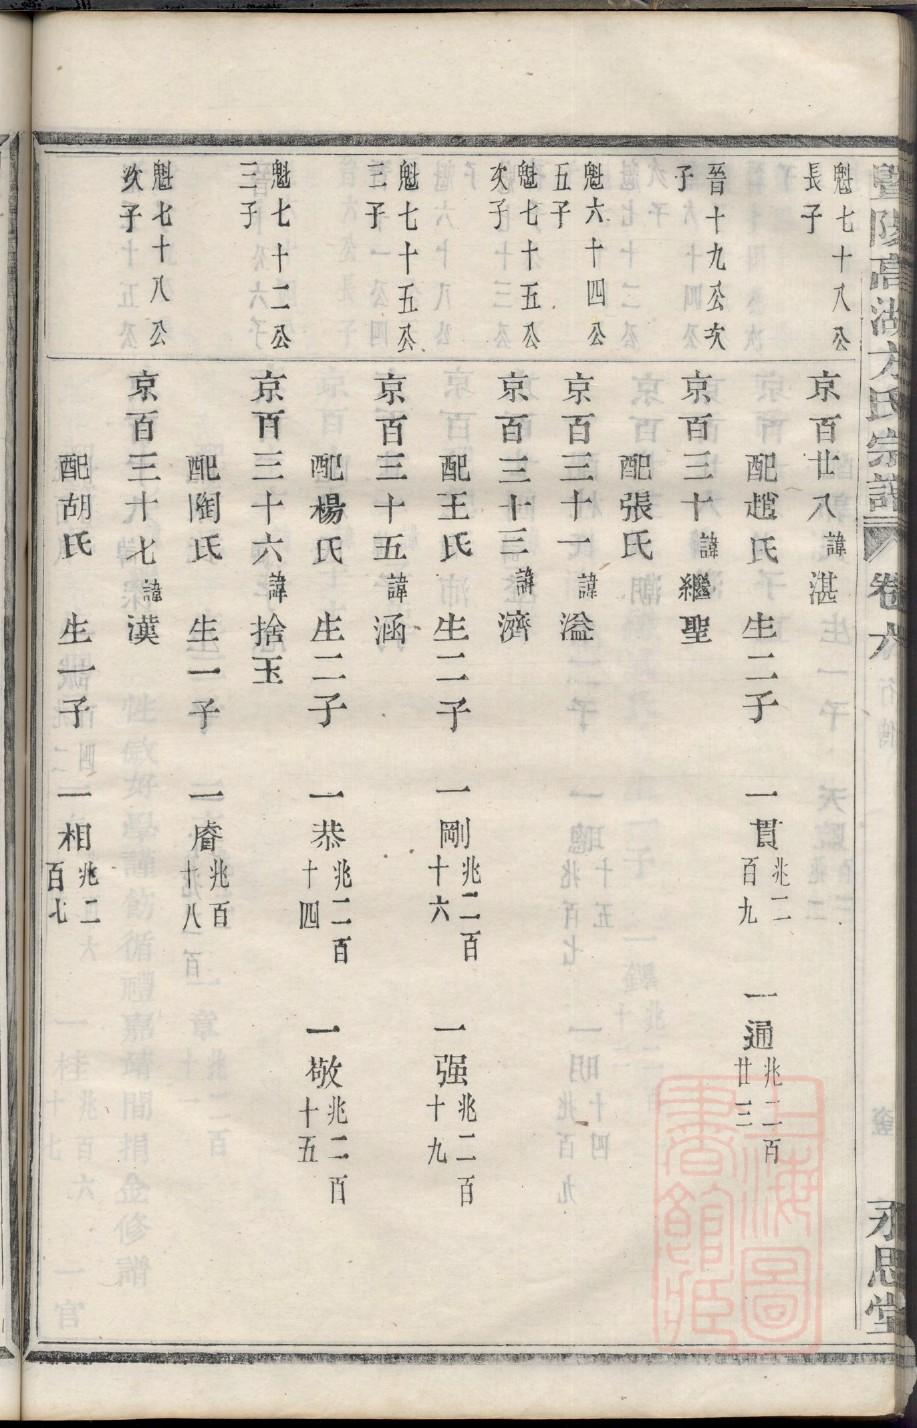 暨陽高湖方氏宗譜 卷六 永思堂
魁七十八公
長子
京百廿八諱湛
配趙氏 生二子 一貫兆二百九 一通兆二百廿三
晉十九公次
子
京百三十諱繼聖
配張氏
魁六十四公
五子
京百三十一諱溢
魁七十五公
次子
京百三十三諱濟
配王氏 生二子 一剛兆二百十六 一强兆二百十九
魁七十五公
三子
京百三十五諱涵
配楊氏 生二子 一恭兆二百十四 一敬兆二百十五
魁七十二公
三子
京百三十六諱捨玉
配陶氏 生一子 一睿兆百十八
魁七十八公
次子
京百三十七諱漢
配胡氏 生一子 一相兆二百七
上海圖書館藏